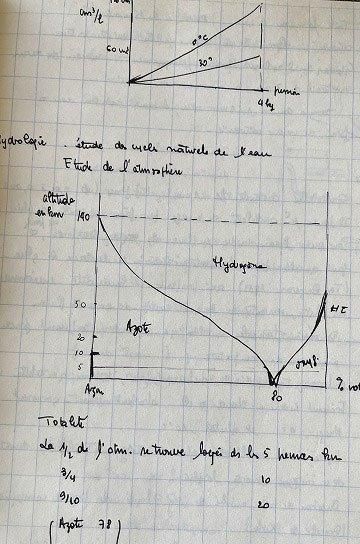 cm³/l
60 ml
0°C
30°
4 kg
Hydrologie . étude des cycles naturels de l'eau
Etude de l'atmosphère
altitude
en km
140
Hydrogène
50
Azote
20
10
5
80
% vol
Totalité
La 1/2 de l'atm. se trouve logée ds les 5 premiers km
3/4 10
9/10 20
( Azote 78 )